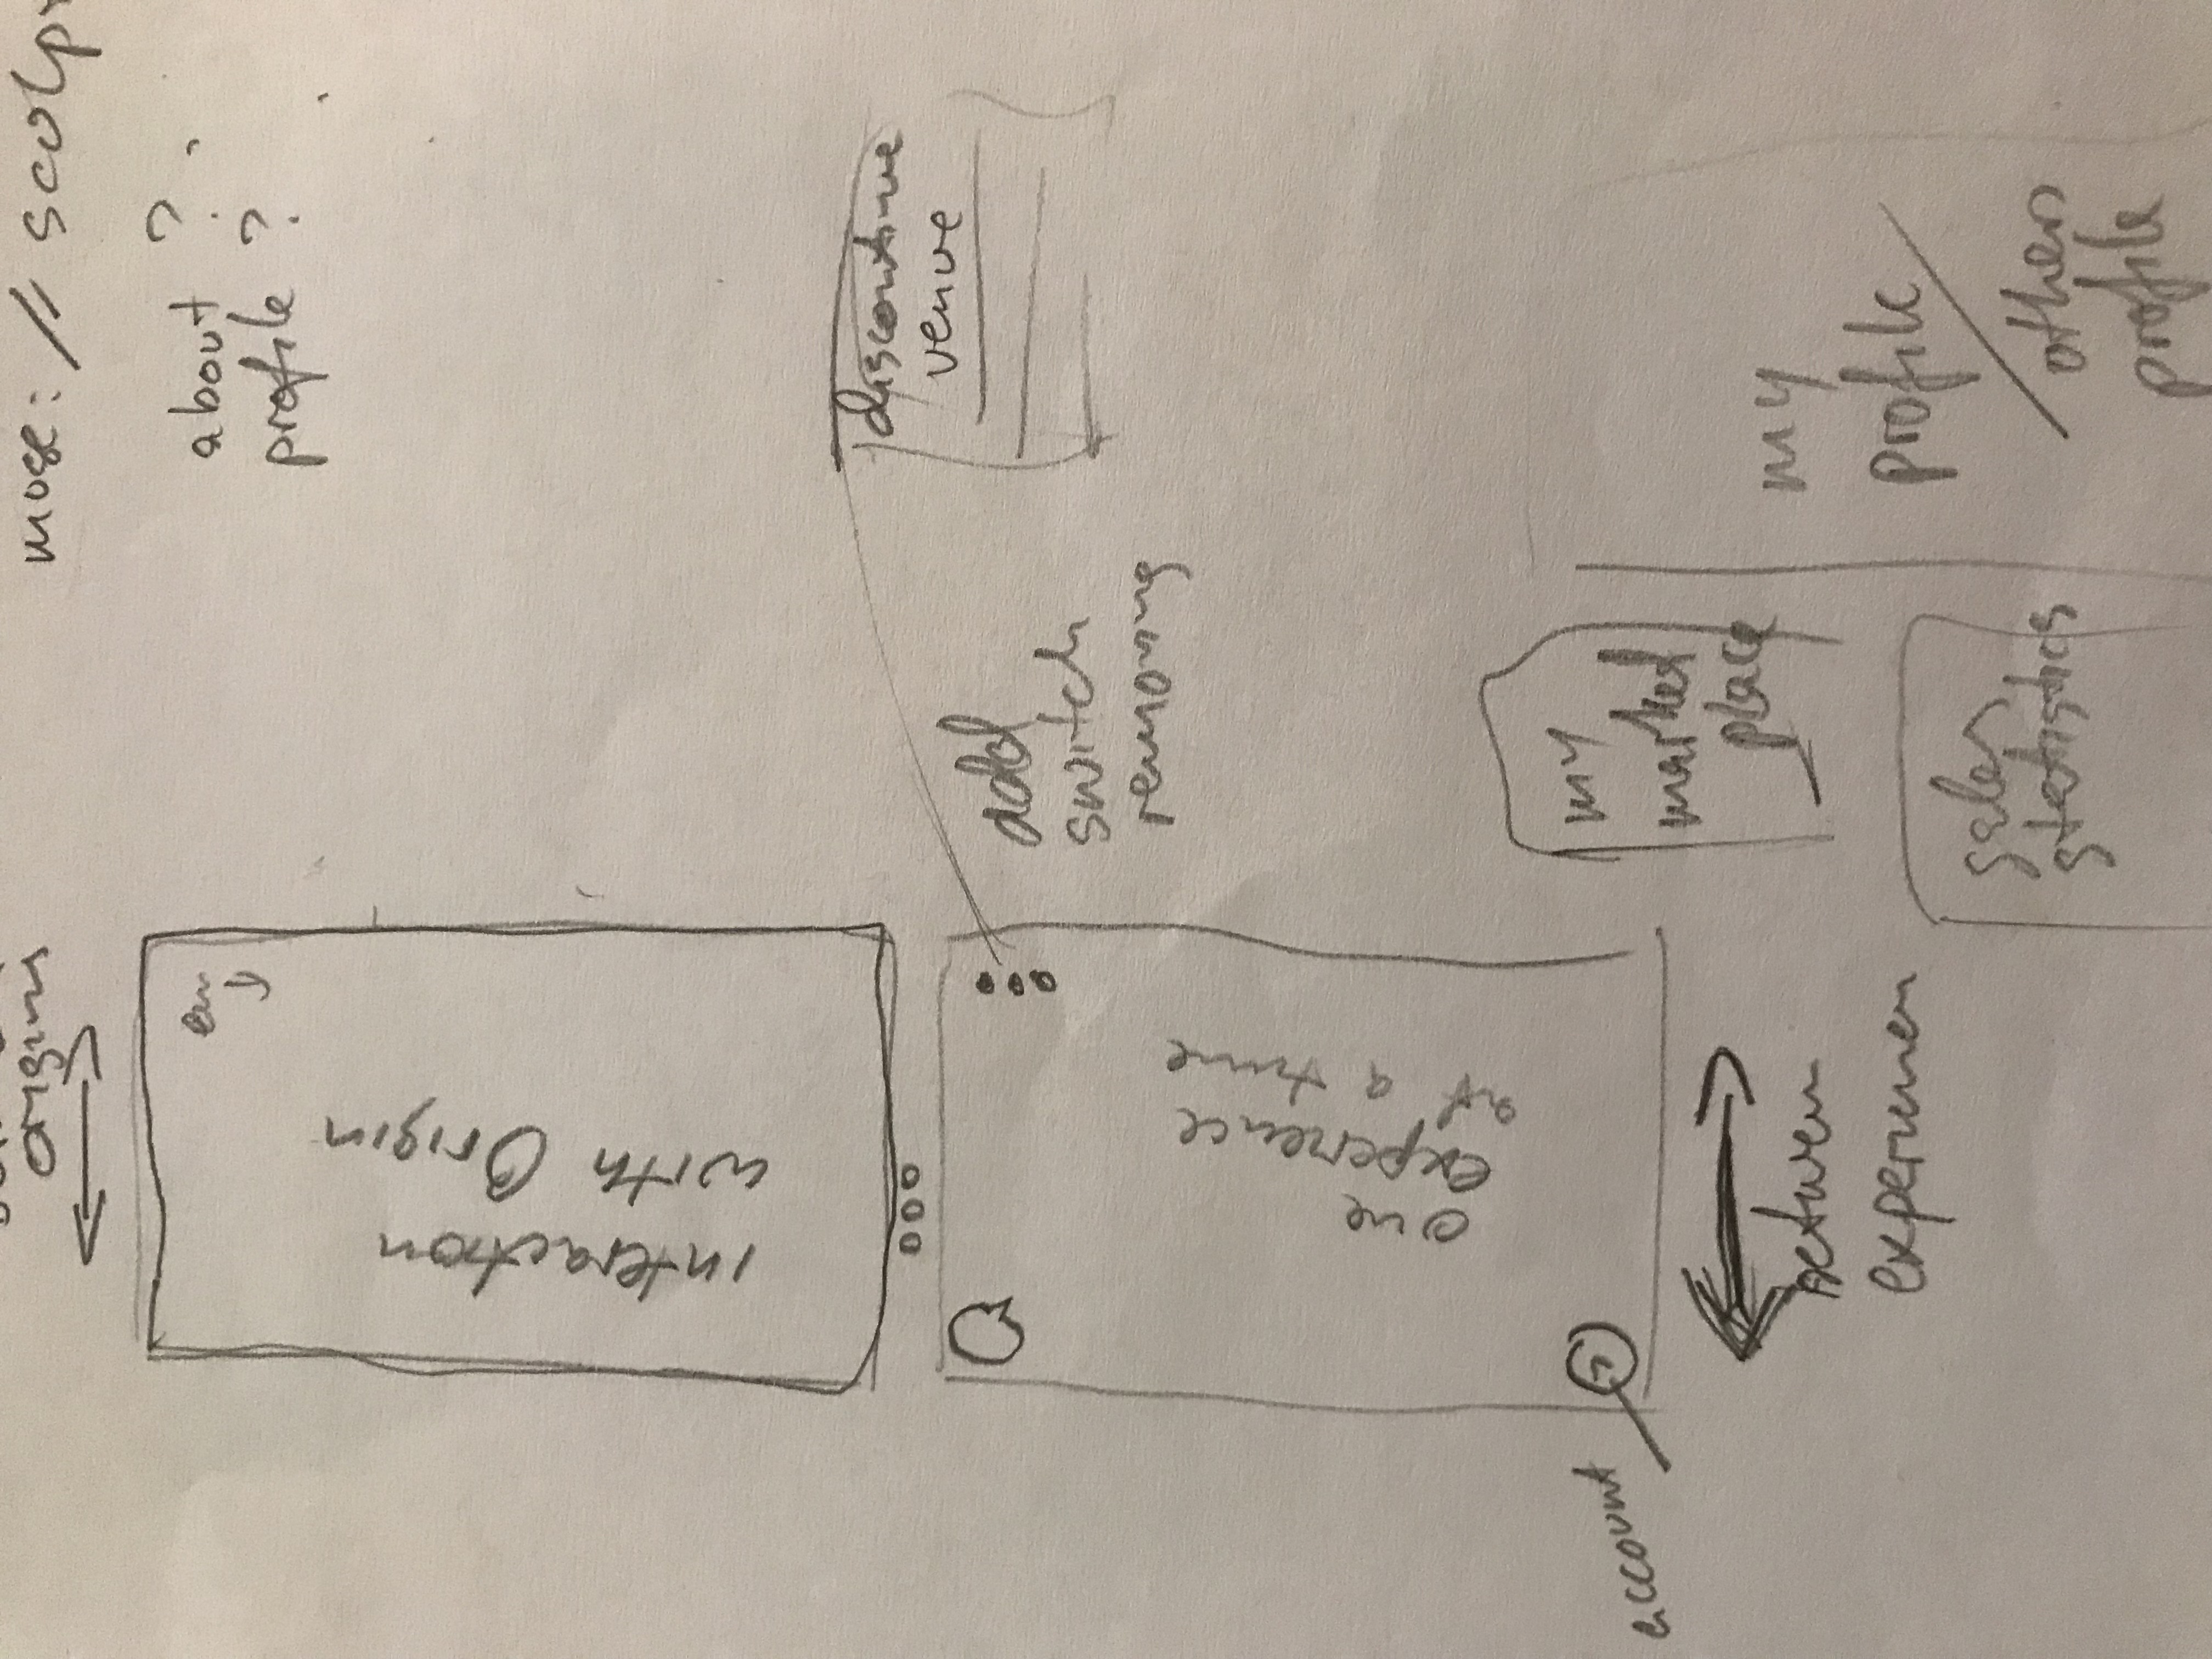 origins
mose: // sculpt
about ?
profile ?
interaction
with Origin
discontinue
venue
add
switch
removing
one
experience
at a time
account
between
experiences
my
market
place
my
profile
others
profile
sales
statistics